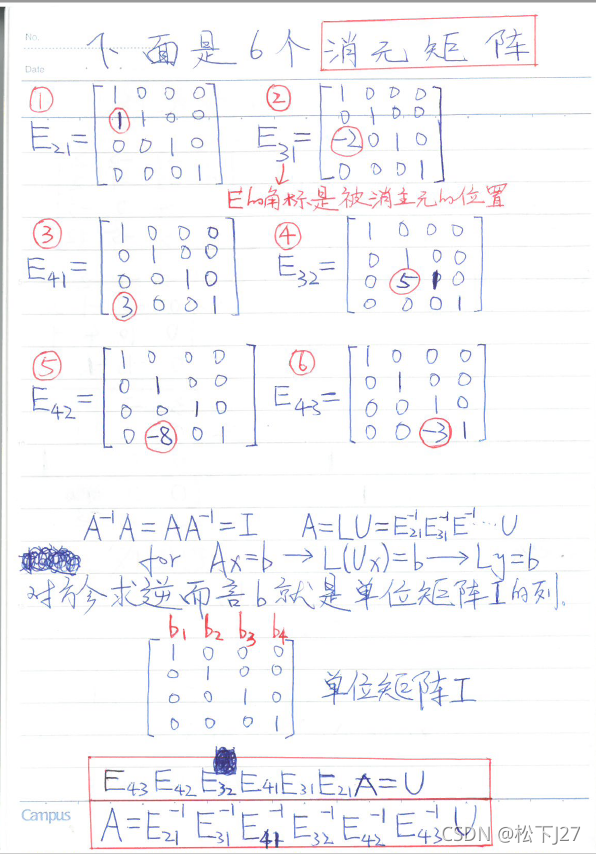 No.
Date
下面是6个消元矩阵
① ②
E21= [1 0 0 0; 1 1 0 0; 0 0 1 0; 0 0 0 1] E31= [1 0 0 0; 0 1 0 0; -2 0 1 0; 0 0 0 1]
E的角标是被消主元的位置
③ ④
E41= [1 0 0 0; 0 1 0 0; 0 0 1 0; 3 0 0 1] E32= [1 0 0 0; 0 1 0 0; 0 5 1 0; 0 0 0 1]
⑤ ⑥
E42= [1 0 0 0; 0 1 0 0; 0 0 1 0; 0 -8 0 1] E43= [1 0 0 0; 0 1 0 0; 0 0 1 0; 0 0 -3 1]
A⁻¹A=AA⁻¹=I A=LU=E21⁻¹E31⁻¹E⁻¹…U
for Ax=b→L(Ux)=b→Ly=b
求逆而言b就是单位矩阵I的列.
b1 b2 b3 b4
[1 0 0 0; 0 1 0 0; 0 0 1 0; 0 0 0 1] 单位矩阵I
E43E42E32E41E31E21A=U
A=E21⁻¹E31⁻¹E41⁻¹E32⁻¹E42⁻¹E43⁻¹U
Campus
CSDN @松下J27